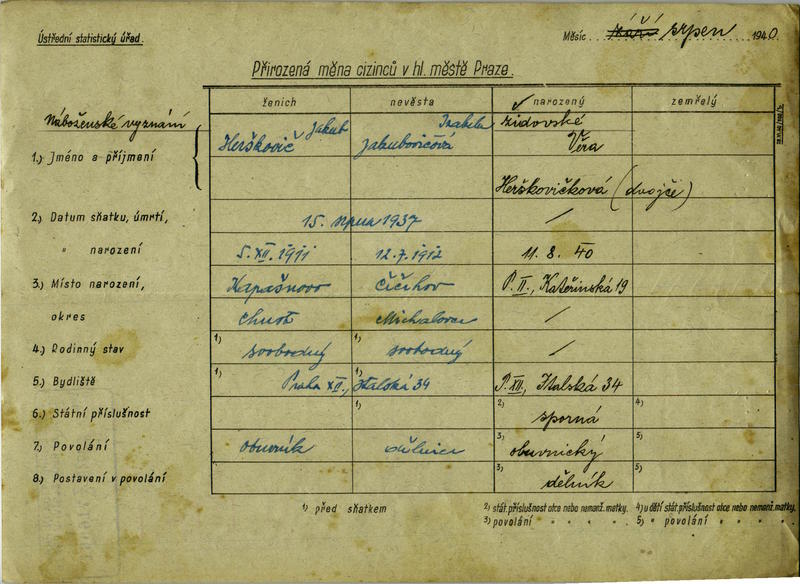 Ústřední statistický úřad.
Měsíc září srpen 1940
Přirozená měna cizinců v hl. městě Praze.
ženich nevěsta narozený zemřelý
Náboženské vyznání židovské
Jakub Izabela Věra
1.) Jméno a příjmení Herškovič Jakubovičová
Herškovičková (dvojče)
2.) Datum sňatku, úmrtí, 15. srpna 1937 /
" narození 5. XII. 1911 12. 7. 1912 11. 8. 40
3.) Místo narození, Kapašnovo Čičihov P. II., Kateřinská 19
okres Chust Michalovce /
4.) Rodinný stav 1) svobodný 1) svobodný /
5.) Bydliště 1) Praha XII., 1) Italská 34 P. XII, Italská 34
6.) Státní příslušnost 1) 2) sporná 4)
7.) Povolání obuvník dělnice 3) obuvnický 5)
8.) Postavení v povolání 3) dělník 5)
1) před sňatkem 2) stát. příslušnost otce nebo nemanž. matky. 4) u dětí stát. příslušnost otce nebo nemanž. matky.
3) povolání " " " " 5) " povolání " " " "